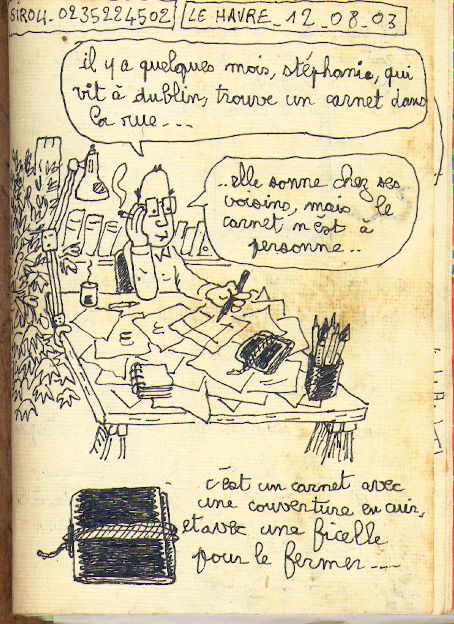 SIROU_0235224502 LE HAVRE_12_08_03
il y a quelques mois, stéphanie, qui
vit à dublin, trouve un carnet dans
la rue...
..elle sonne chez ses
voisins, mais le
carnet n'est à
personne..
c'est un carnet avec
une couverture en cuir,
et avec une ficelle
pour le fermer....